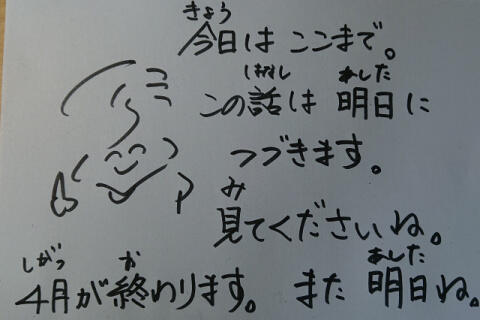 きょう
今日は ここまで。
はなし あした
この話は 明日に
つづきます。
み
見てくださいね。
しがつ か あした
4月が終わります。 また 明日ね。